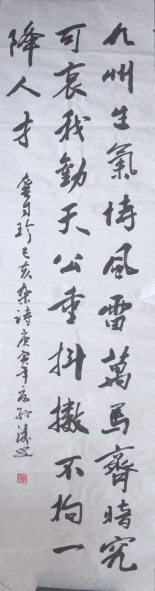 九州生氣恃風雷萬馬齊喑究
可哀我勸天公重抖擻不拘一
降人才
龔自珍己亥雜詩庚寅年